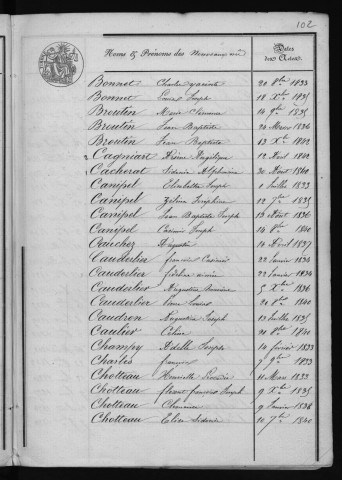 102
Noms & Prénoms des Nouveaux nés
Dates des Actes
Bonnet Charles 20 8bre 1833
Bonnet Louis Joseph 18 Xbre 1835
Breutin Marie Clémence 14 9bre 1835
Breutin Jean Baptiste 20 Mars 1836
Breutin Jean Baptiste 13 Xbre 1842
Cagniart Angélique 12 Avril 1842
Cacherat Sidonie Alphonsine 30 Août 1840
Canipel Elisabeth Joseph 1 Juillet 1833
Canipel Zélime Joséphine 12 7bre 1835
Canipel Jean Baptiste Joseph 13 Août 1836
Canipel Casimir Joseph 14 8bre 1840
Cauchez Augustin 14 Avril 1837
Cauderlier François Casimir 22 Janvier 1834
Cauderlier 22 Janvier 1834
Cauderlier Augustin 5 Xbre 1836
Cauderlier Louis 20 8bre 1840
Caudron Augustin Joseph 13 Juillet 1835
Caulier Céline 21 8bre 1840
Champy Adèle Joseph 10 février 1833
Charles François 7 9bre 1833
Chotteau Henriette 11 Mars 1833
Chotteau florent françois Joseph 9 Xbre 1835
Chotteau 9 Janvier 1838
Chotteau Elise Sidonie 10 7bre 1840